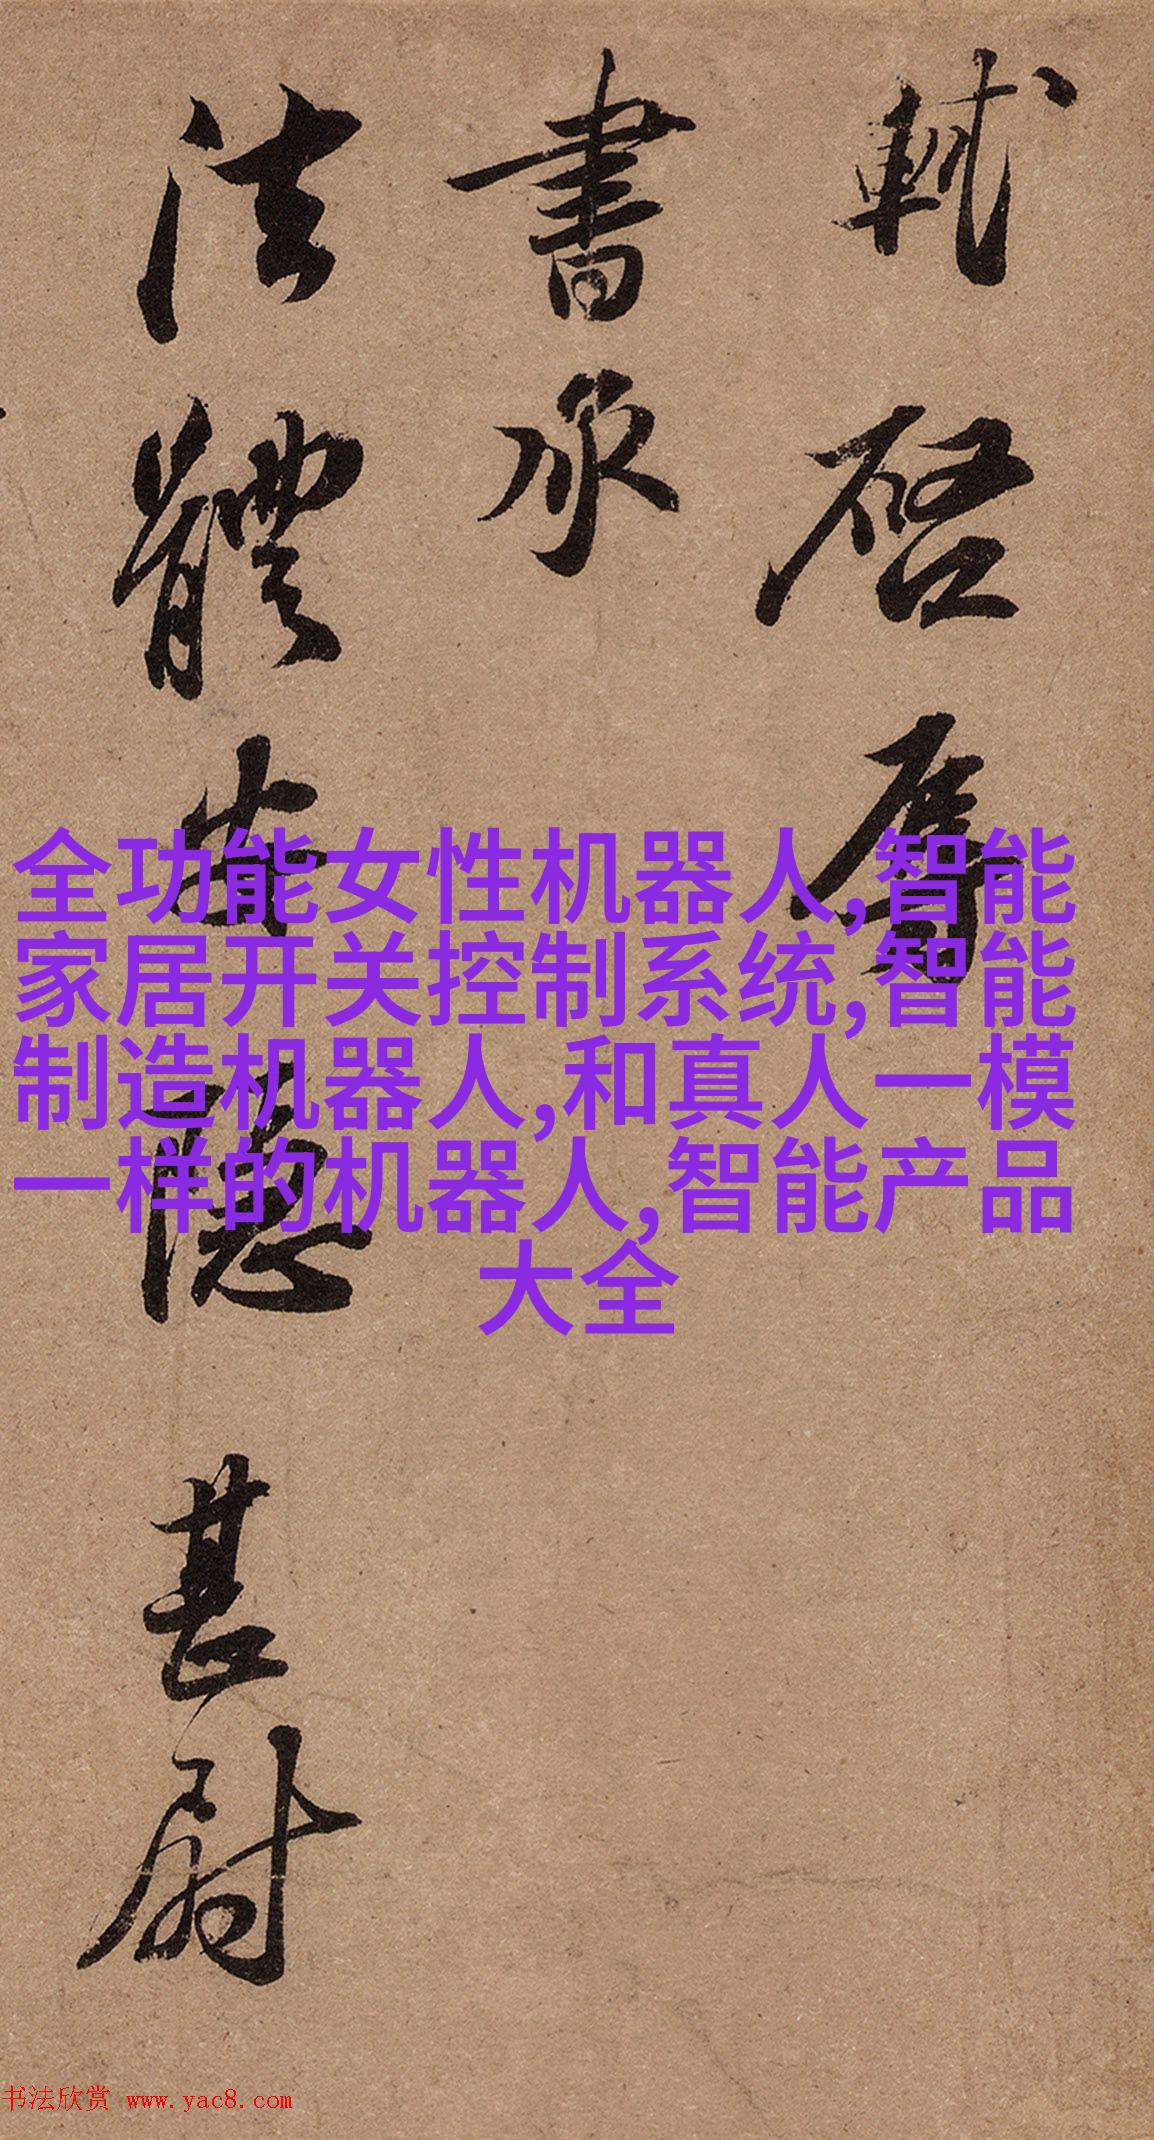 軾啓辱
書承
法體安隱甚尉
全功能女性机器人,智能
家居开关控制系统,智能
制造机器人,和真人一模
一样的机器人,智能产品
大全
书法欣赏 www.yac8.com